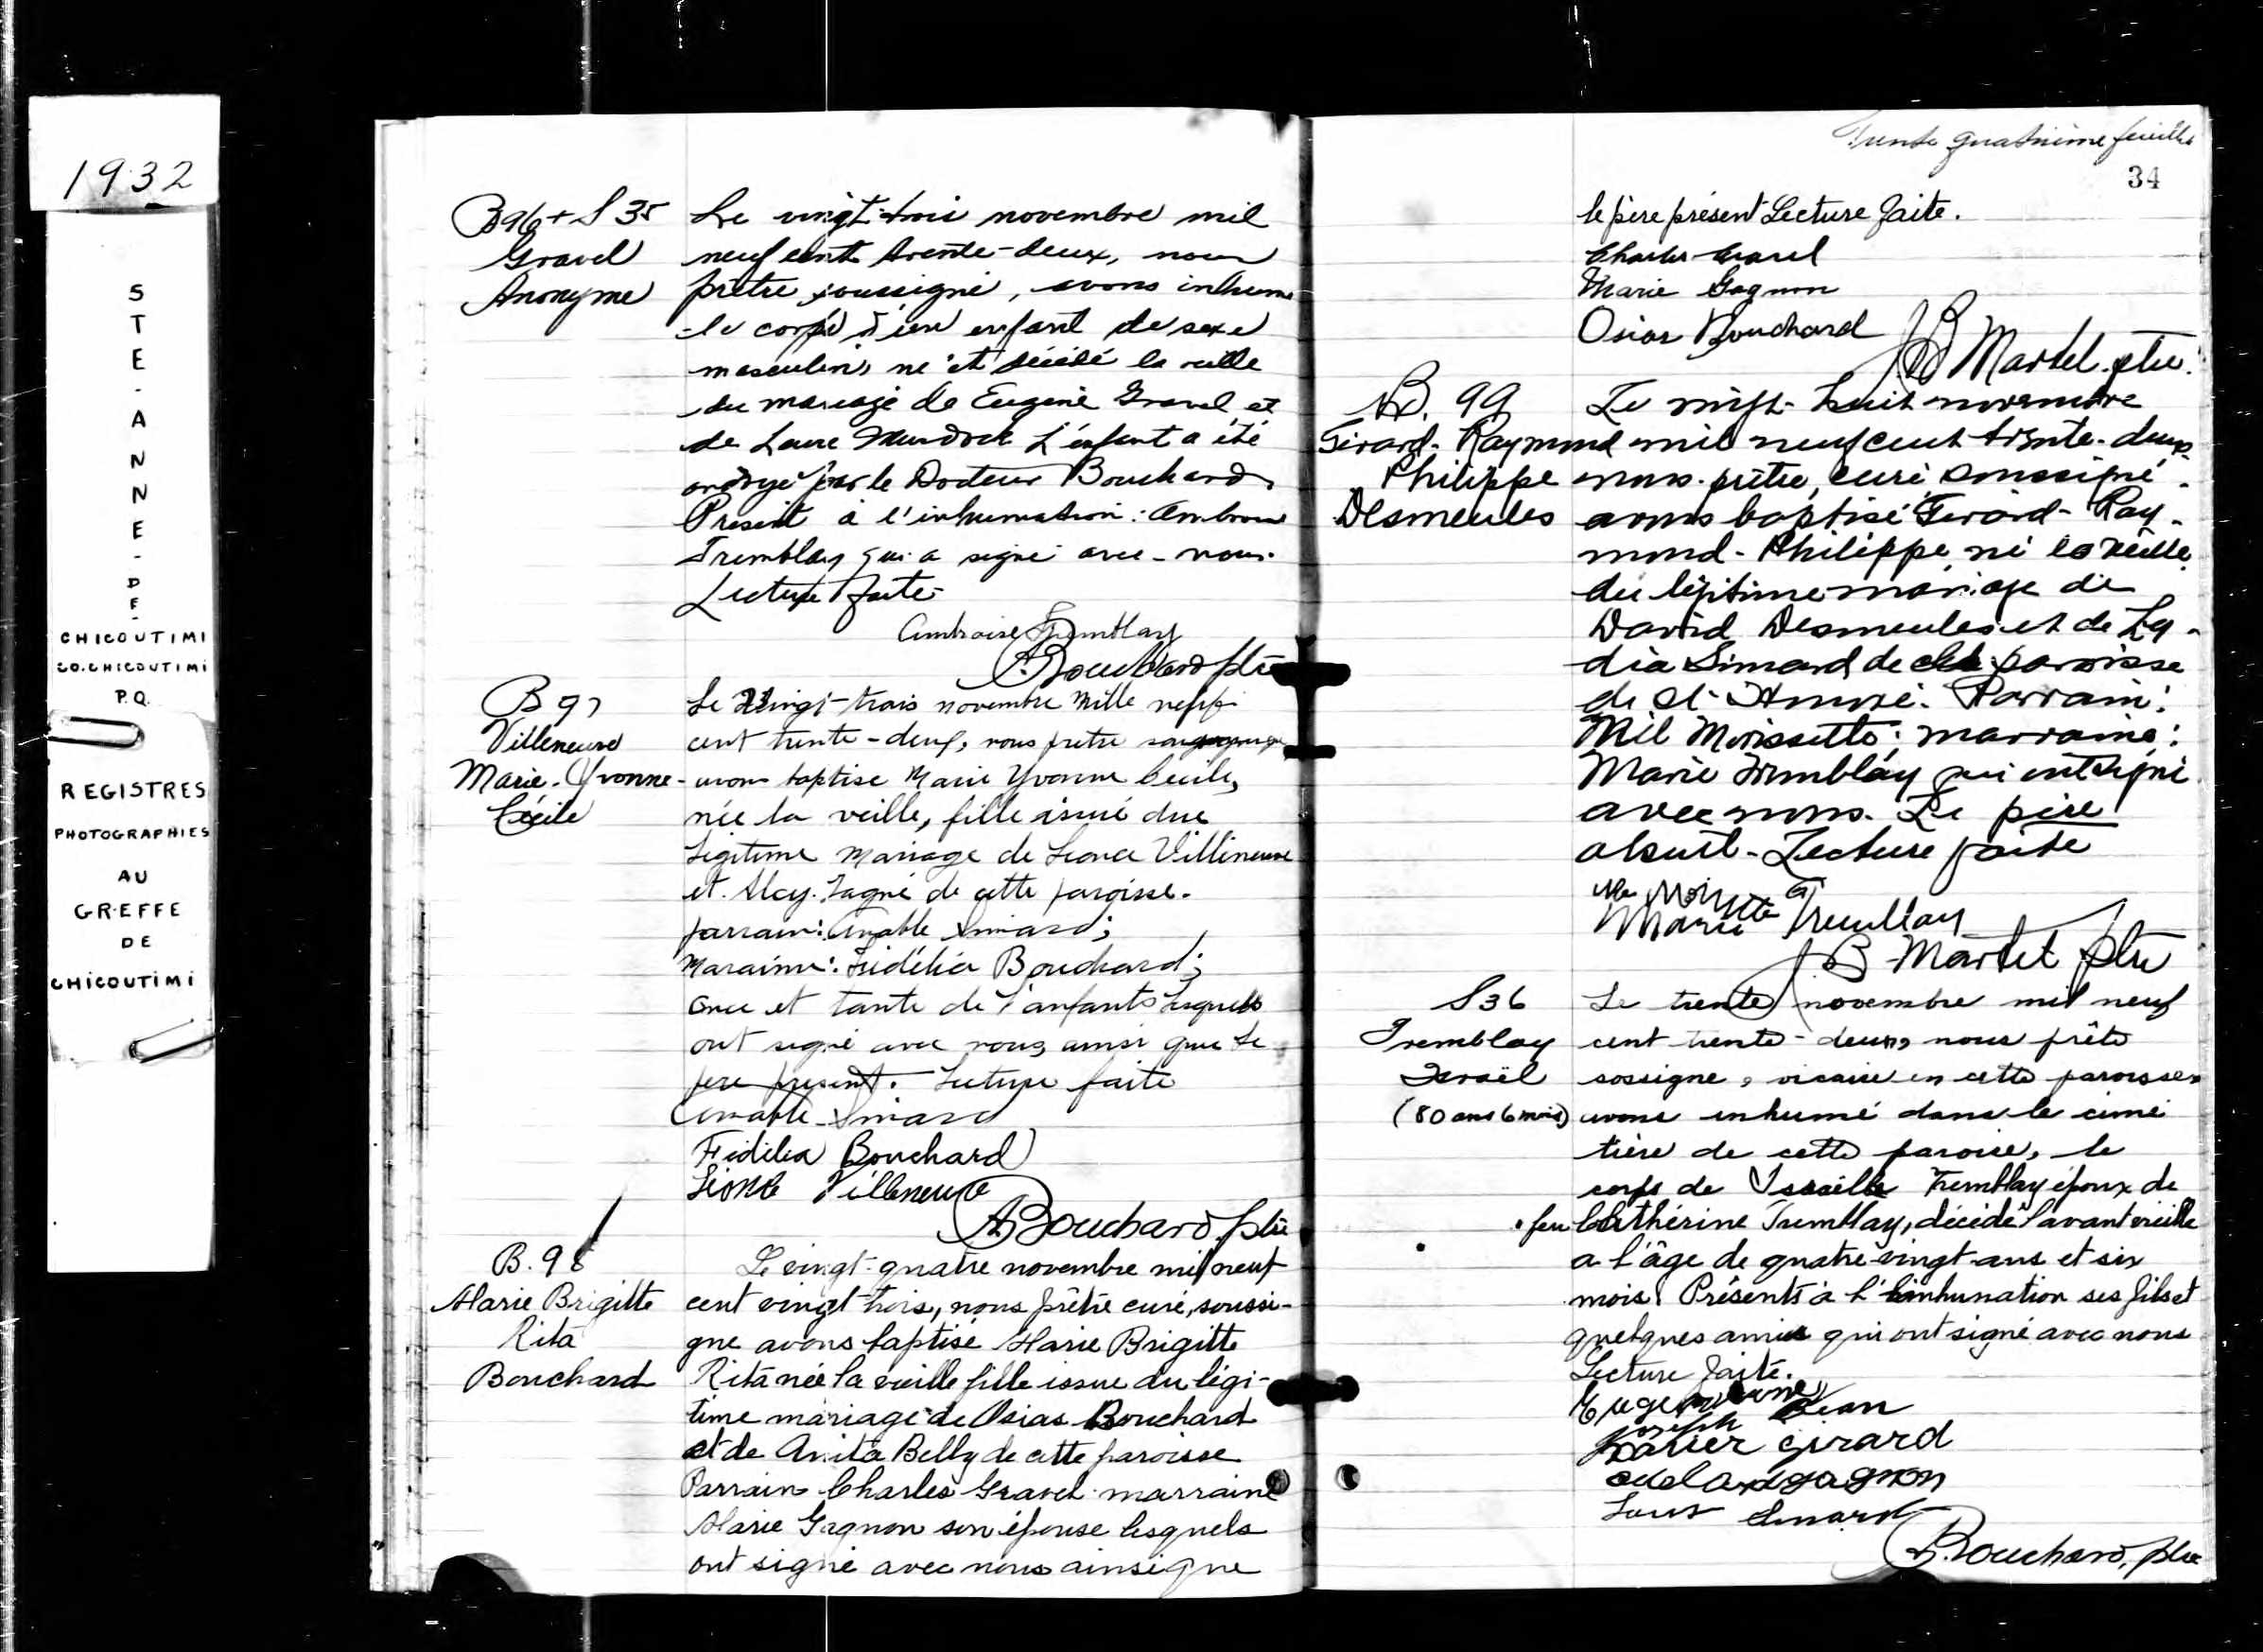 1932
STE-ANNE-DE-
CHICOUTIMI
CO.CHICOUTIMI
P.Q.
REGISTRES
PHOTOGRAPHIES
AU
GREFFE
DE
CHICOUTIMI
B96 + S 35
Gravel
Anonyme
Le vingt-trois novembre mil
neuf cent trente-deux, nous
prêtre soussigné, avons inhumé
le corps d'un enfant de sexe
masculin, né et décédé la veille
du mariage de Eugène Gravel et
de Laure Murdock L'enfant a été
ondoyé par le Docteur Bouchard.
Présent à l'inhumation: Ambroise
Tremblay qui a signé avec-nous.
Lecture faite
Ambroise Tremblay
A Bouchard ptre
B 97
Villeneuve
Marie-Yvonne-
Cécile
Le vingt-trois novembre mille neuf
cent trente-deux, nous pretre
avons baptise Marie Yvonne Cecile,
née la veille, fille issue due
Legitime Mariage de Leonce Villeneuve
et Gagné de cette paroisse.
parrain: Amable Simard;
Maraine: Fidélia Bouchard;
once et tante de l'enfants lesquels
ont signé avec nous ainsi que le
pere present. Lecture faite
Amable Simard
Fidelia Bouchard
Léonce Villeneuve
A Bouchard, ptre
B. 98
Marie Brigitte
Rita
Bouchard
Le vingt-quatre novembre mil neuf
cent vingt trois, nous prêtre curé, soussi-
gne avons baptisé Marie Brigitte
Rita née la vieille fille issue du légi-
time mariage de Osias Bouchard
et de Anita Belly de cette paroisse
Parrain Charles Gravel marraine
Marie Gagnon son épouse lesquels
ont signé avec nous ainsi que
Trente quatrième feuillet
34
le père présent Lecture faite.
Charles Gravel
Marie Gagnon
Osias Bouchard
JB Martel ptre.
B. 99
Girard-Raymond
Philippe
Desmeules
Le vingt-huit novembre
mil neuf cent trente-deux,
nous prêtre, curé soussigné
avons baptisé Girard-Ray-
mond-Philippe né la veille
du légitime mariage de
David Desmeules et de Ly-
dia Simard de la paroisse
de St- Parrain:
Mil Morissette; marraine:
Marie Tremblay qui ont signé
avec nous. Le père
absent-Lecture faite
Morissette
Marie Tremblay
JB Martel ptre
S36
Tremblay
Israël
(80 ans 6 mois)
Le trente novembre mil neuf
cent trente-deux, nous prêtre
sossigne, vicaire en cette paroisse,
avons inhumé dans le cime
tière de cette paroisse, le
corps de Israël Tremblay époux de
feu Cathérine Tremblay, décédé l'avant veille
a l'âge de quatre-vingt-ans et six
mois. Présents à l'inhunation ses fils et
quelques amis qui ont signé avec nous
Lecture faite.
Jean
Joseph
Xavier Girard
Adelard Gagnon
Louis Simard
A. Bouchard, ptre